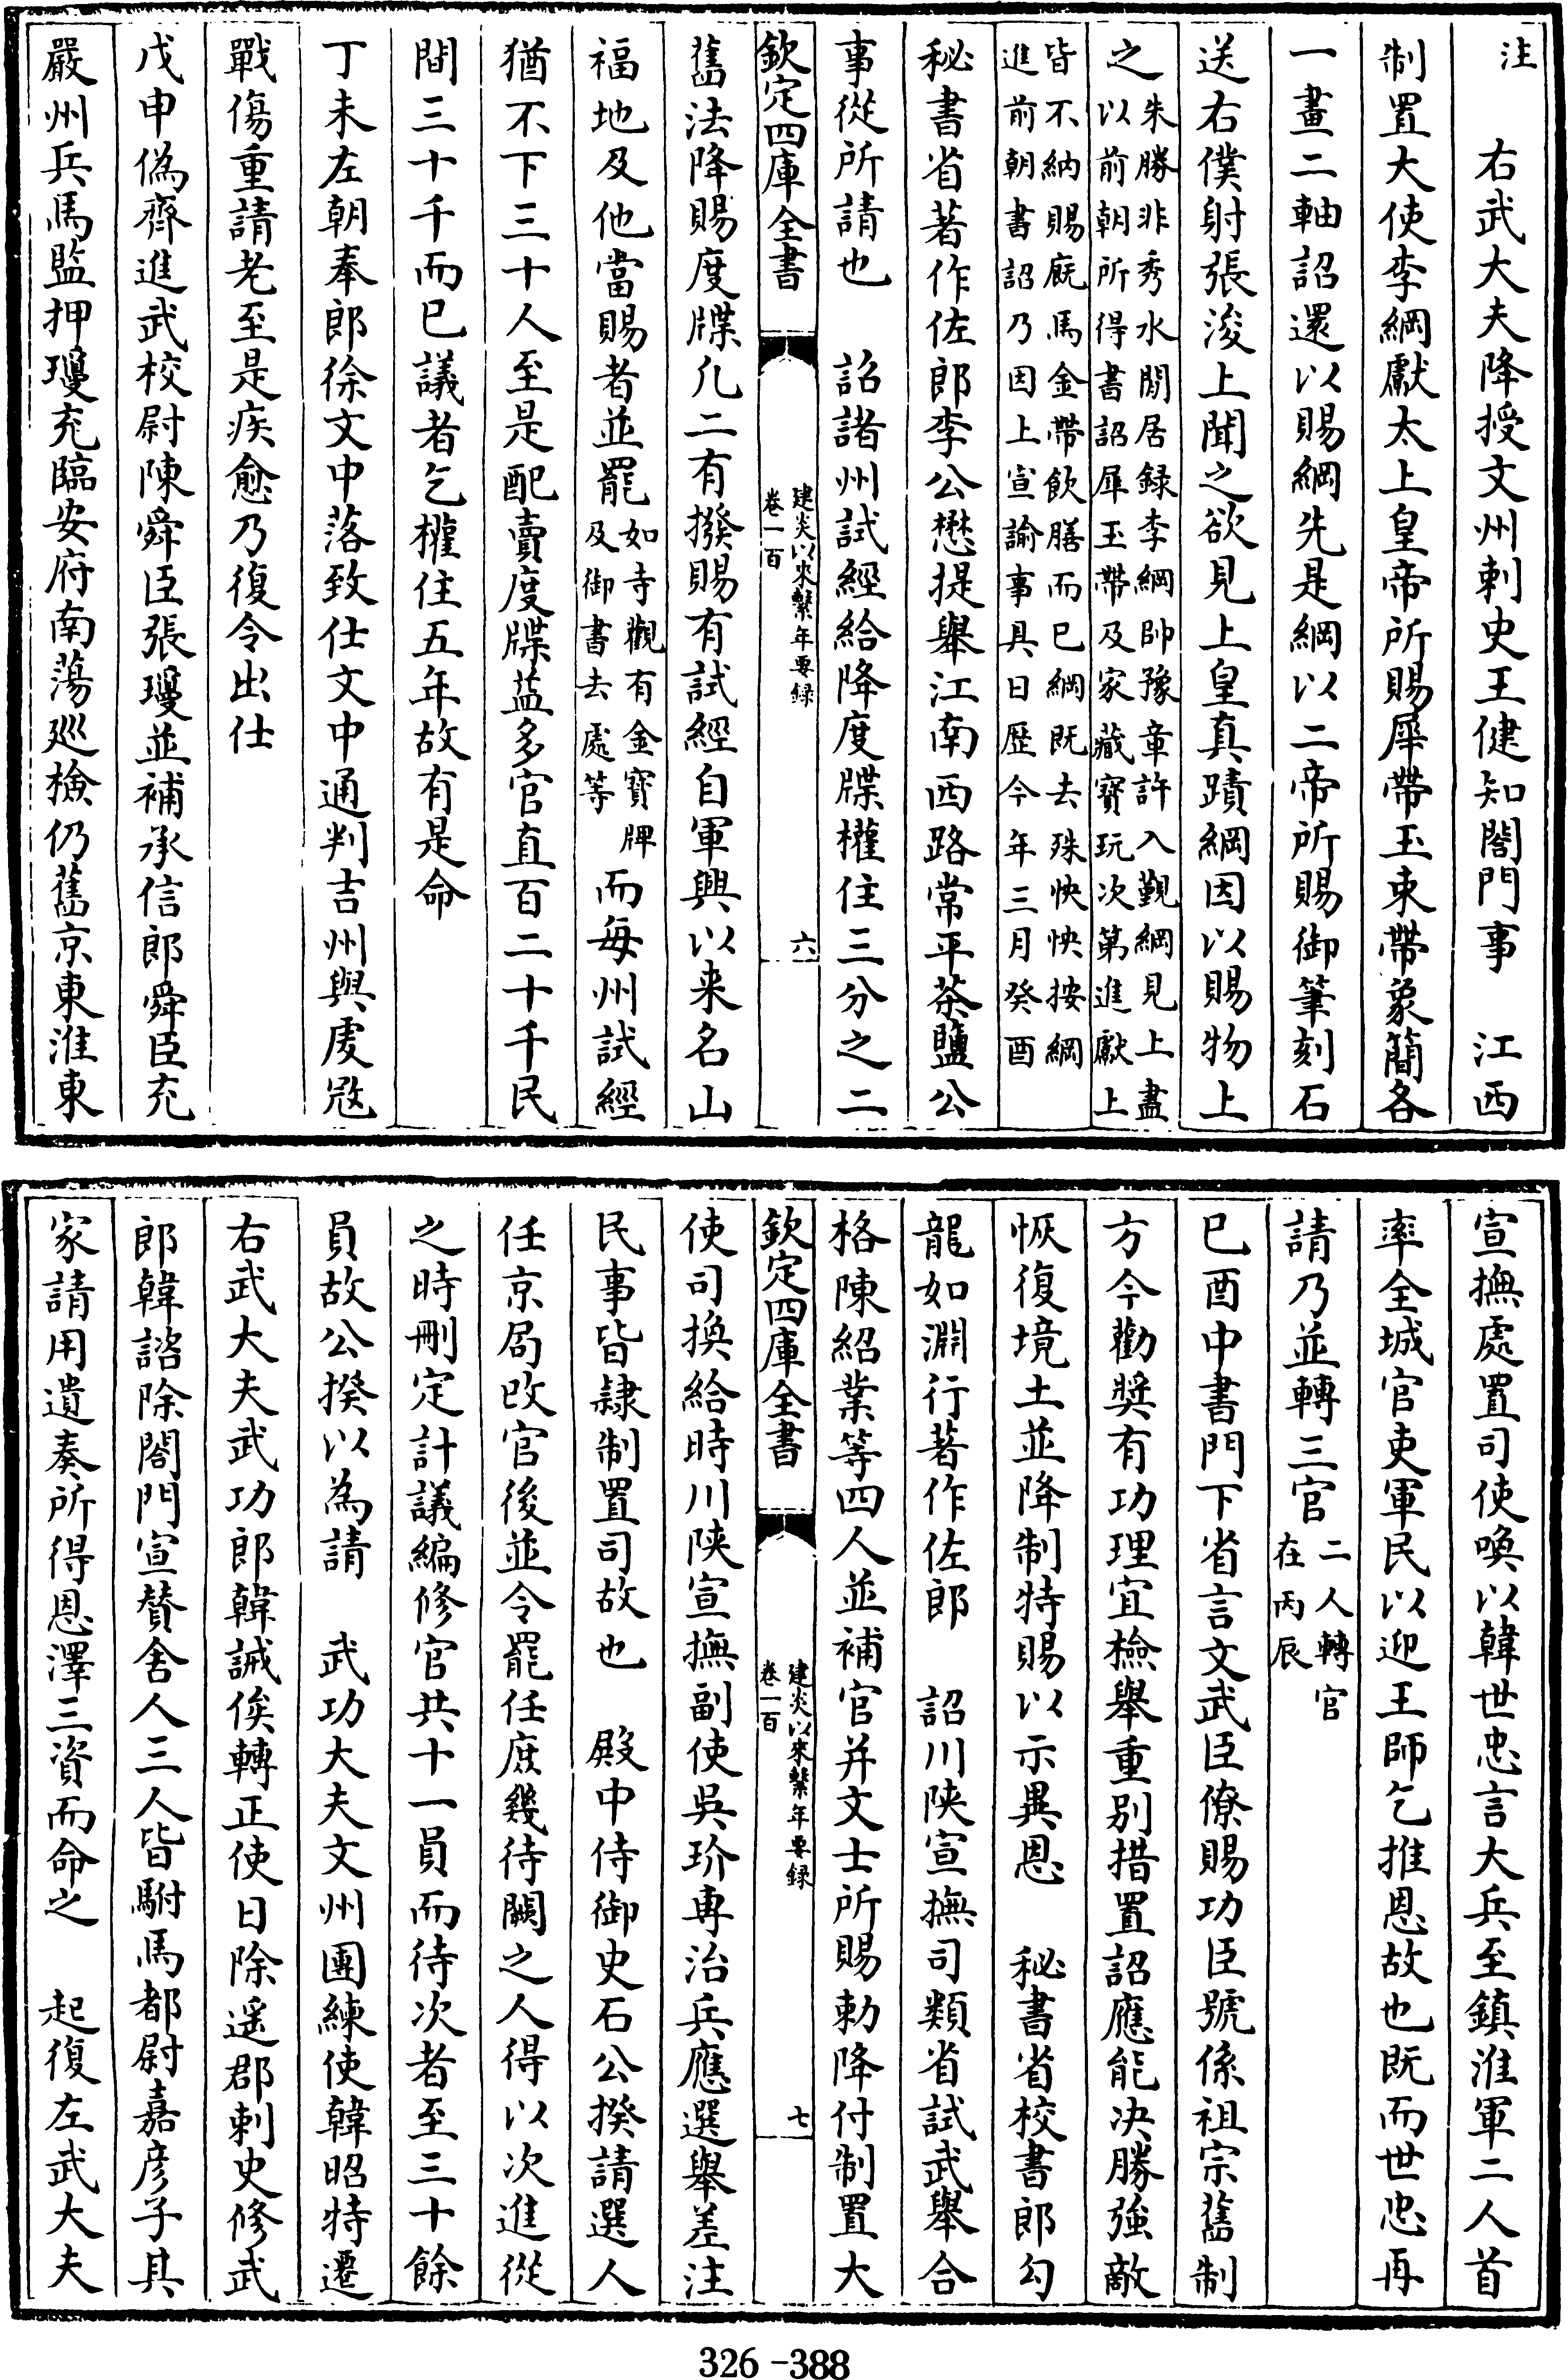 注　右武大夫降授文州刺史王健知閤門事　江西
制置大使李綱獻太上皇帝所賜犀帶玉束帶象簡各
一畫二軸詔還以賜綱先是綱以二帝所賜御筆刻石
送右僕射張浚上聞之欲見上皇真蹟綱因以賜物上
之朱勝非秀水閒居録李綱帥豫章許入覲綱見上盡
以前朝所得書詔犀玉帶及家藏寶玩次第進獻上
皆不納賜廐馬金帶飲膳而已綱既去殊怏怏按綱
進前朝書詔乃因上宣諭事具日歴今年三月癸酉
秘書省著作佐郎李公懋提舉江南西路常平茶鹽公
事從所請也　詔諸州試經給降度牒權住三分之二
欽定四庫全書
建炎以來繫年要録
卷一百
六
舊法降賜度牒凡二有撥賜有試經自軍興以来名山
福地及他當賜者並罷如寺觀有金寳牌
及御書去處等而每州試經
猶不下三十人至是配賣度牒益多官直百二十千民
間三十千而已議者乞權住五年故有是命
丁未左朝奉郎徐文中落致仕文中通判吉州與虔㓂
戰傷重請老至是疾愈乃復令出仕
戊申偽齊進武校尉陳舜臣張瓊並補承信郎舜臣充
嚴州兵馬監押瓊充臨安府南蕩廵檢仍舊京東淮東
宣撫處置司使喚以韓世忠言大兵至鎮淮軍二人首
率全城官吏軍民以迎王師乞推恩故也既而世忠再
請乃並轉三官二人轉官
在丙辰
已酉中書門下省言文武臣僚賜功臣號係祖宗舊制
方今勸奬有功理宜檢舉重别措置詔應能决勝強敵
恢復境土並降制特賜以示異恩　秘書省校書郎勾
龍如淵行著作佐郎　詔川陜宣撫司類省試武舉合
格陳紹業等四人並補官并文士所賜勅降付制置大
欽定四庫全書
建炎以來繫年要録
卷一百
七
使司換給時川陜宣撫副使吳玠專治兵應選舉差注
民事皆隷制置司故也　殿中侍御史石公揆請選人
任京局改官後並令罷任庶幾待闕之人得以次進從
之時刪定計議編修官共十一員而待次者至三十餘
員故公揆以為請　武功大夫文州團練使韓昭特遷
右武大夫武功郎韓誠俟轉正使日除遥郡刺史修武
郎韓諮除閤門宣賛舍人三人皆駙馬都尉嘉彦子其
家請用遺奏所得恩澤三資而命之　起復左武大夫
326-388